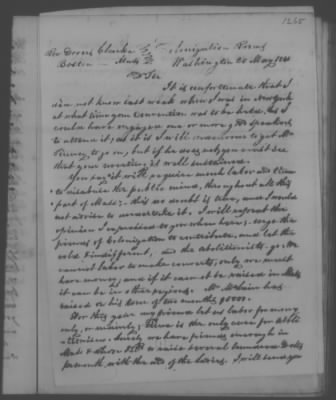 1265
Rev Dorus Clarke Colonization Rooms
Boston Mass Washington 20 May 1841
Dr Sir
It is unfortunate that I
did not know last week when I was in New York
at what time your convention was to be held, as I
could have engaged one or more good speakers
to attend it; as it is I will endeavor to get Mr
to go on, but if he does not you must see
that your meeting is well sustained.
You say it will require much labor and time
to disabuse the public mind, throughout all this
part of Mass: this no doubt is true, and I would
not advise to undertake it. I will repeat the
opinion I expressed to you when here; urge the
friends of Colonization to contribute, and let the
cold & indifferent, and the abolitionists, go. We
cannot labor to make converts, only we must
have money, and if it cannot be raised in Mass
it can be in other regions. Mr McLain has
raised on his tour of two months $5000.
For this year my friend let us labor for money
only, or mainly; there is the only cure for
Surely we have friends enough in
Mass to raise several hundred Dolls
per month, with the aid of the ladies. I will send you